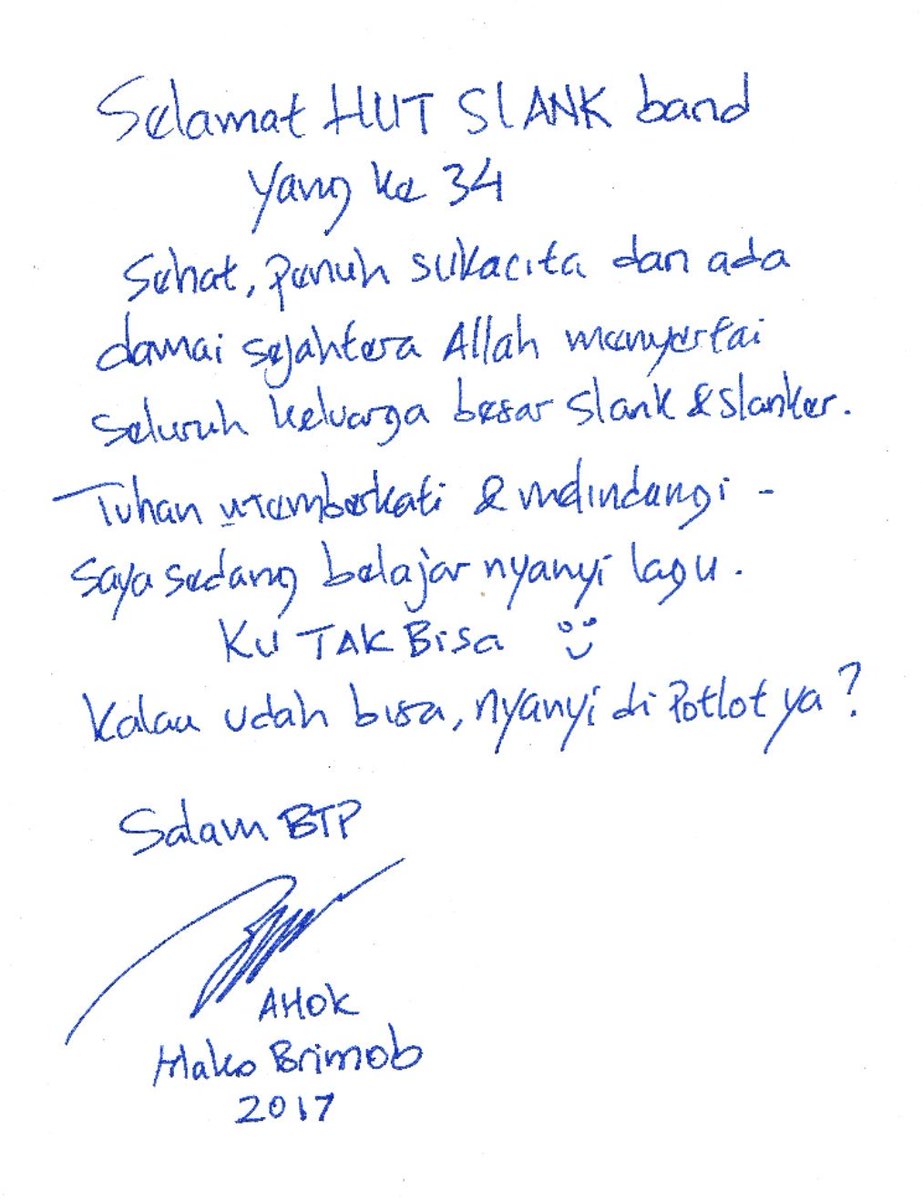 Selamat HUT SLANK band
yang ke 34
Sehat, penuh sukacita dan ada
damai sejahtera Allah menyertai
seluruh keluarga besar slank & slanker.
Tuhan memberkati & melindungi -
saya sedang belajar nyanyi lagu.
KU TAK BISA ü
Kalau udah bisa, nyanyi di Potlot ya?
Salam BTP
AHOK
Mako Brimob
2017